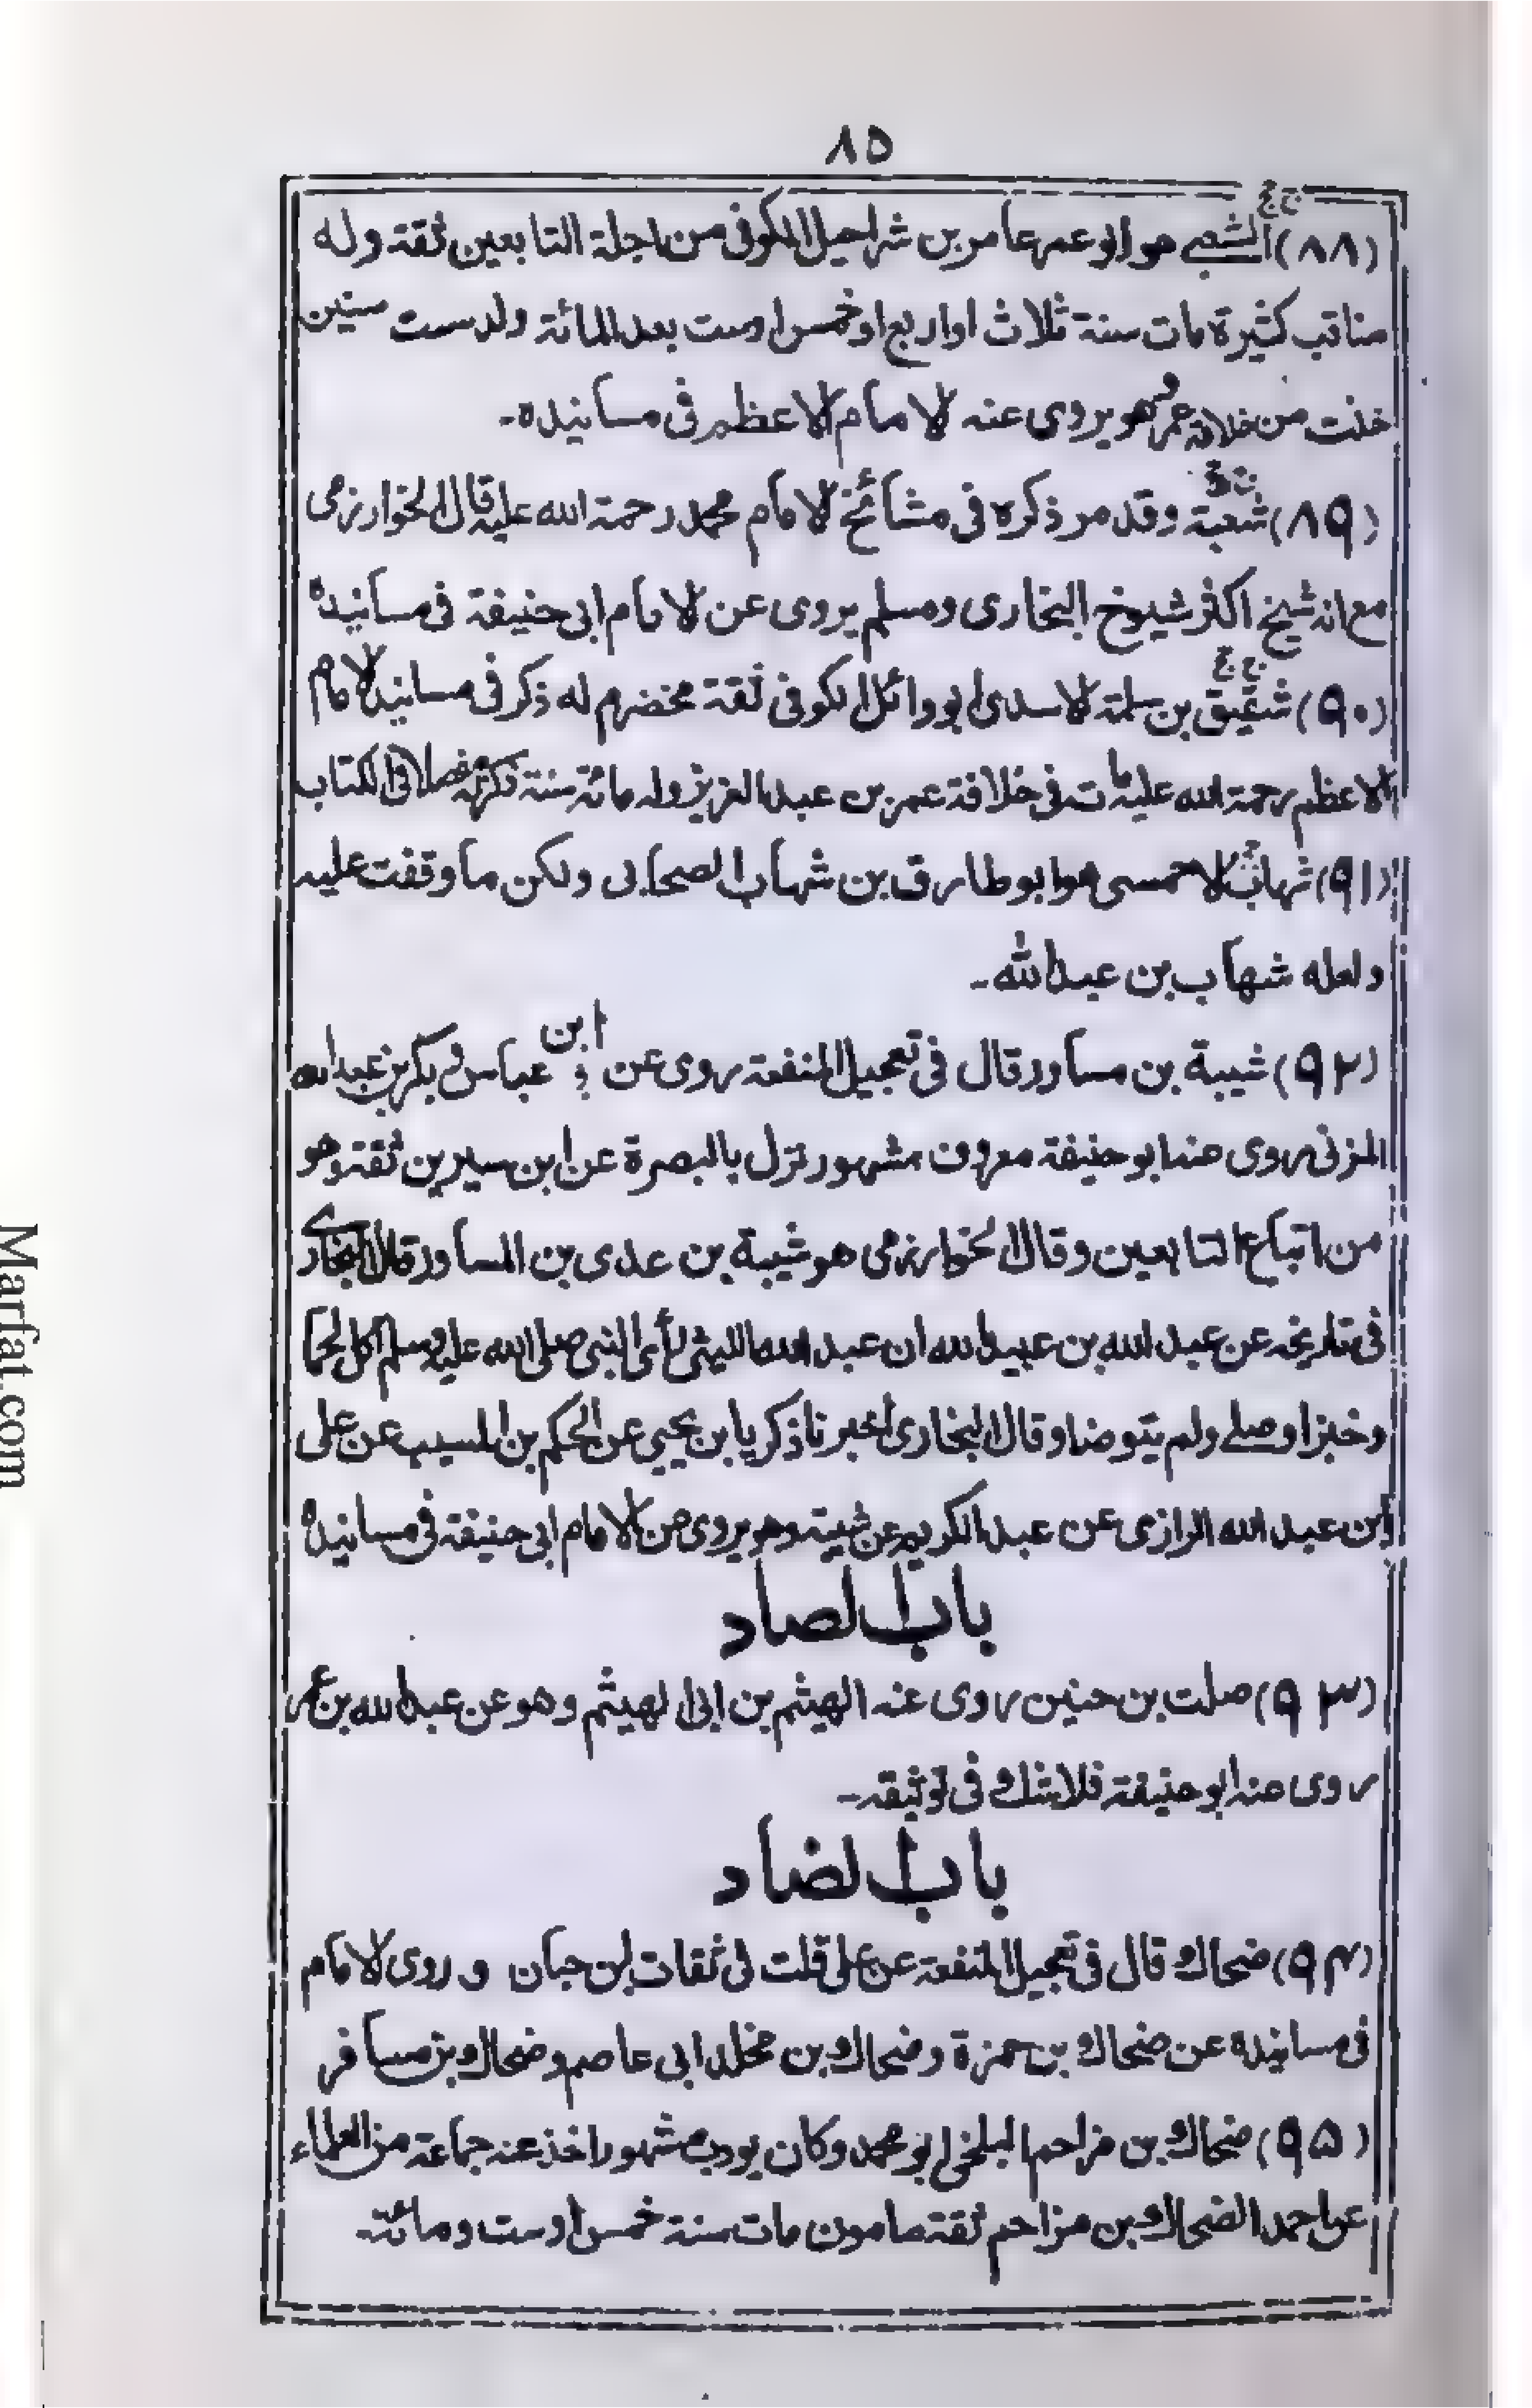 ٨٥
(٨٨) الشعبے هو ابو عمر عامر بن شراحيل الكوفى من اجلة التابعين ثقة وله
مناقب كثيرة مات سنة ثلاث او اربع او خمس او ست بعد المائة ولد ست سنين
خلت من خلافة عمر وهو يروى عنه الامام الاعظم فى مسانيده۔
(٨٩) شعبة وقد مر ذكره فى مشائخ الامام محمد رحمة الله عليه قال الخوارزمى
مع انه شيخ اكثر شيوخ البخارى ومسلم يروى عن الامام ابى حنيفة فى مسانيده
(٩٠) شقيق بن سلمة الاسدى ابو وائل الكوفى ثقة مخضرم له ذكر فى مسانيد الامام
الاعظم رحمة الله عليه مات فى خلافة عمر بن عبد العزيز وله مائة سنة ذكرته مفصلا فى الكتاب
(٩١) شهاب الاحمسى هو ابو طارق بن شهاب الصحابى ولكن ما وقفت عليه
ولعله شهاب بن عبد الله۔
(٩٢) شيبة بن مساور قال فى تعجيل المنفعة روى عن ابن عباس و بكر بن عبد الله
المزنى روى عنه ابو حنيفة معروف مشهور نزل بالبصرة عن ابن سيرين ثقة وهو
من اتباع التابعين وقال الخوارزمى هو شيبة بن عدى بن المساور قال البخارے
فى تاريخه عن عبد الله بن عبيد الله ان عبد الله الليثى رأى النبى صلى الله عليه وسلم اكل لحما
وخبزا وصلے ولم يتوضا وقال البخارى اخبرنا ذكريا بن يحيي عن الحكم بن المسيب عن على
ابن عبد الله الرازى عن عبد الكريم عن شيبة وهو يروى عن الامام ابى حنيفة فى مسانيده
باب الصاد
(٩٣) صلت بن حنين روى عنه الهيثم بن ابى الهيثم وهو عن عبد الله بن عمر
روى عنه ابو حنيفة فلا شك فى توثيقه۔
باب الضاد
(٩٤) ضحاك قال فى تعجيل المنفعة عن على قلت فى ثقات ابن حبان و روى الامام
فى مسانيده عن ضحاك بن حمزة وضحاك بن مخلد ابى عاصم وضحاك بن مسافر
(٩٥) ضحاك بن مزاحم البلخى ابو محمد وكان يودب مشهور اخذ عنه جماعة من العلماء
عن احمد الضحاك بن مزاحم ثقة مامون مات سنة خمس او ست ومائة
Marfat.com